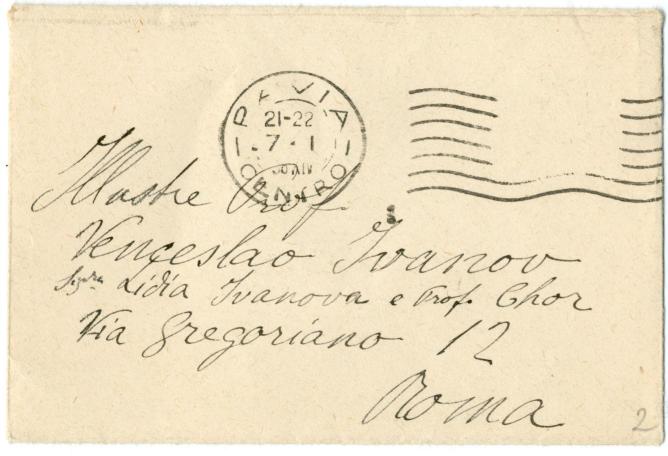 PAVIA
21-22
7·1
XIV
CENTRO
Illustre Prof.
Venceslao Ivanov
Sigra Lidia Ivanova e Prof. Chor
Via Gregoriano 12
Roma
2